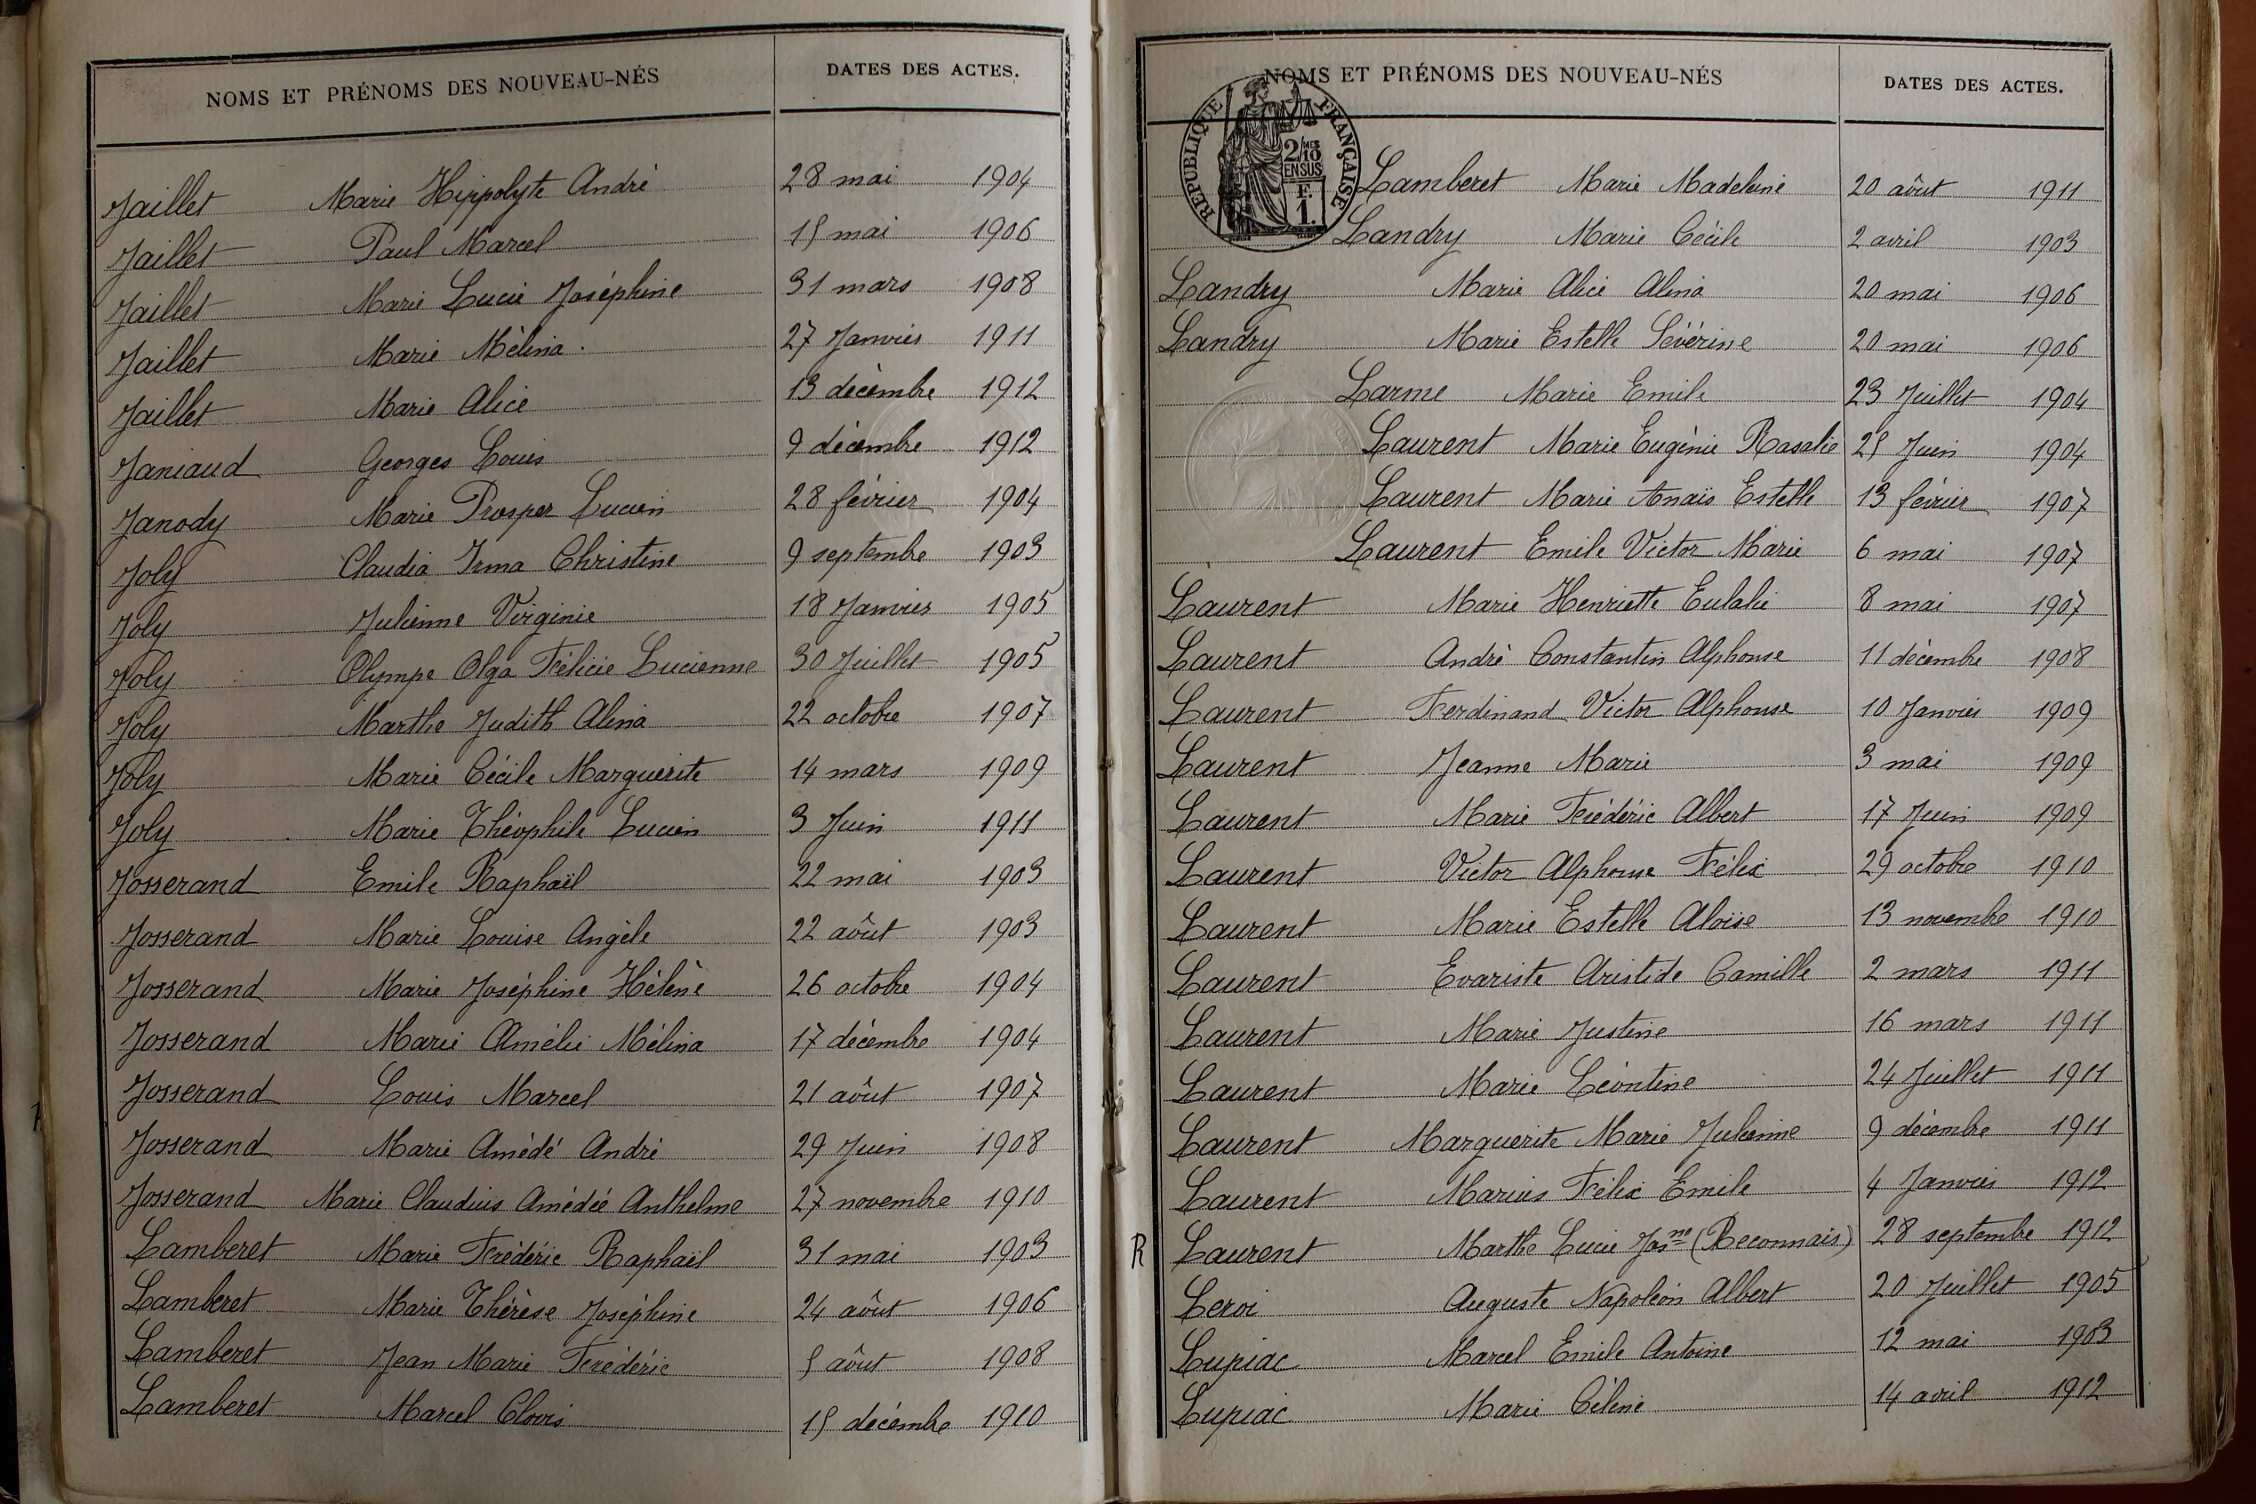 NOMS ET PRÉNOMS DES NOUVEAU-NÉS DATES DES ACTES.
Jaillet Marie Hippolyte André 28 mai 1904
Jaillet Paul Marcel 15 mai 1906
Jaillet Marie Lucie Joséphine 31 mars 1908
Jaillet Marie Mélina 27 Janvier 1911
Jaillet Marie Alice 13 décembre 1912
Janiaud Georges Louis 9 décembre 1912
Janody Marie Prosper Lucien 28 février 1904
Joly Claudia Irma Christine 9 septembre 1903
Joly Julienne Virginie 18 Janvier 1905
Joly Olympe Olga Félicie Lucienne 30 Juillet 1905
Joly Marthe Judith Alina 22 octobre 1907
Joly Marie Cécile Marguerite 14 mars 1909
Joly Marie Théophile Lucien 3 Juin 1911
Josserand Emile Raphaël 22 mai 1903
Josserand Marie Louise Angèle 22 aôut 1903
Josserand Marie Joséphine Hélène 26 octobre 1904
Josserand Marie Amélie Mélina 17 décembre 1904
Josserand Louis Marcel 21 aôut 1907
Josserand Marie Amédé André 29 Juin 1908
Josserand Marie Claudius Amédée Anthelme 27 novembre 1910
Lamberet Marie Frédéric Raphaël 31 mai 1903
Lamberet Marie Thérèse Joséphine 24 aôut 1906
Lamberet Jean Marie Frédéric 5 aôut 1908
Lamberet Marcel Clovis 15 décembre 1910
NOMS ET PRÉNOMS DES NOUVEAU-NÉS DATES DES ACTES.
RÉPUBLIQUE FRANÇAISE
2/10 MES
EN SUS
F.
1.
Lamberet Marie Madeleine 20 aôut 1911
Landry Marie Cécile 2 avril 1903
Landry Marie Alice Alina 20 mai 1906
Landry Marie Estelle Sévérine 20 mai 1906
Larme Marie Emile 23 Juillet 1904
Laurent Marie Eugénie Rosalie 25 Juin 1904
Laurent Marie Anaïs Estelle 13 février 1907
Laurent Emile Victor Marie 6 mai 1907
Laurent Marie Henriette Eulalie 8 mai 1907
Laurent André Constantin Alphonse 11 décembre 1908
Laurent Ferdinand Victor Alphonse 10 Janvier 1909
Laurent Jeanne Marie 3 mai 1909
Laurent Marie Frédéric Albert 17 Juin 1909
Laurent Victor Alphonse Félix 29 octobre 1910
Laurent Marie Estelle Aloïse 13 novembre 1910
Laurent Evariste Aristide Camille 2 mars 1911
Laurent Marie Justine 16 mars 1911
Laurent Marie Léontine 24 Juillet 1911
Laurent Marguerite Marie Julienne 9 décembre 1911
Laurent Marius Félix Emile 4 Janvier 1912
R Laurent Marthe Lucie Jos ne (Reconnais) 28 septembre 1912
Leroi Auguste Napoléon Albert 20 Juillet 1905
Lupiac Marcel Emile Antoine 12 mai 1903
Lupiac Marie Céline 14 avril 1912